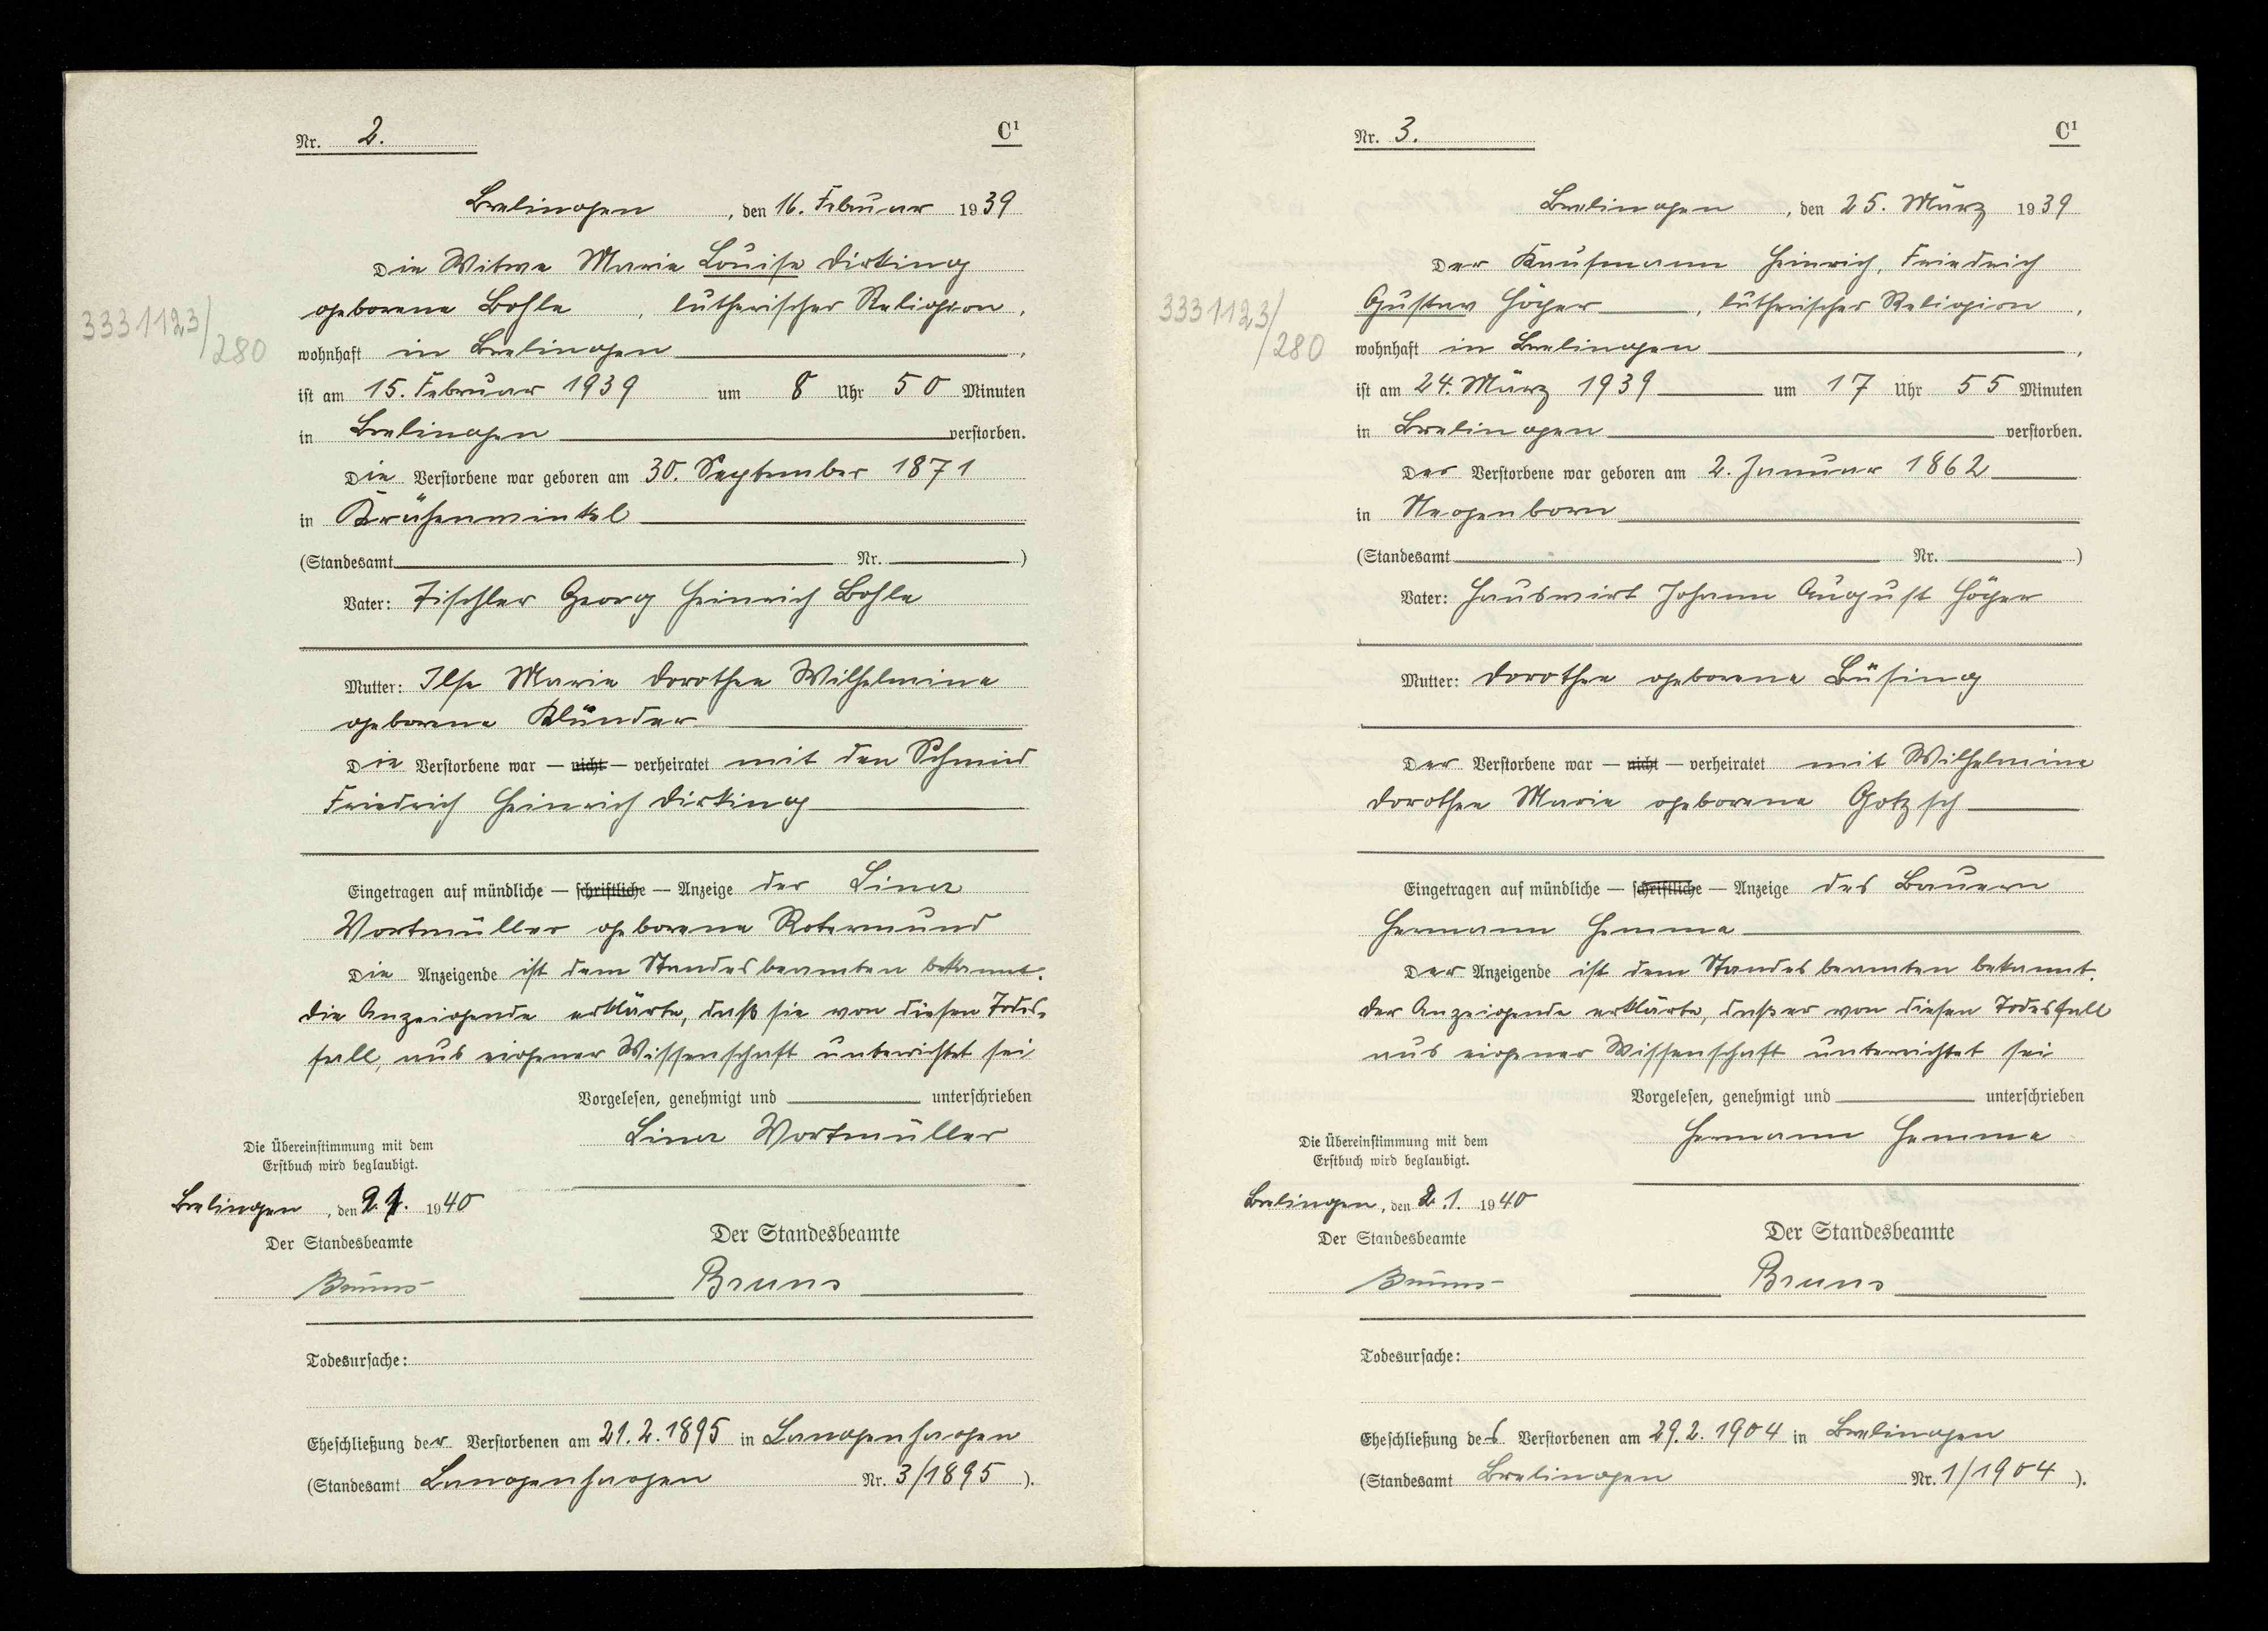 Nr. 2.
C¹
Brelingen, den 16. Februar 1939
Die Witwe Marie Louise Dirking
geborene Bohle, lutherischer Religion,
3331123/280
wohnhaft in Brelingen,
ist am 15. Februar 1939 um 8 Uhr 50 Minuten
in Brelingen verstorben.
Die Verstorbene war geboren am 30. September 1871
in Krähenwinkel
(Standesamt Nr. )
Vater: Tischler Georg Heinrich Bohle
Mutter: Ilse Marie Dorothee Wilhelmine
geborene Klünder
Die Verstorbene war — nicht — verheiratet mit den Schmied
Friedrich Heinrich Dirking
Eingetragen auf mündliche — schriftliche — Anzeige der Lina
Wortmüller geborene Rotermund
Die Anzeigende ist dem Standesbeamten bekannt.
Die Anzeigende erklärte, daß sie von diesen Todes-
fall, aus eigener Wissenschaft unterrichtet sei
Vorgelesen, genehmigt und unterschrieben
Lina Wortmüller
Die Übereinstimmung mit dem
Erstbuch wird beglaubigt.
Brelingen, den 2.1. 1940
Der Standesbeamte
Bruns
Der Standesbeamte
Bruns
Todesursache:
Eheschließung der Verstorbenen am 21.2.1895 in Langenhagen
(Standesamt Langenhagen Nr. 3/1895).
Nr. 3.
C¹
Brelingen, den 25. März 1939
Der Kaufmann Heinrich, Friedrich
Gustav Höper, lutherischer Religion,
3331123/280
wohnhaft in Brelingen,
ist am 24. März 1939 um 17 Uhr 55 Minuten
in Brelingen verstorben.
Der Verstorbene war geboren am 2. Januar 1862
in Negenborn
(Standesamt Nr. )
Vater: Hauswirt Johann August Höper
Mutter: Dorothee geborene Büsing
Der Verstorbene war — nicht — verheiratet mit Wilhelmine
Dorothee Marie geborene Gotzsch
Eingetragen auf mündliche — schriftliche — Anzeige des Bauern
Hermann Hemme
Der Anzeigende ist dem Standesbeamten bekannt.
Der Anzeigende erklärte, daß er von diesen Todesfall
aus eigener Wissenschaft unterrichtet sei
Vorgelesen, genehmigt und unterschrieben
Hermann Hemme
Die Übereinstimmung mit dem
Erstbuch wird beglaubigt.
Brelingen, den 2.1. 1940
Der Standesbeamte
Bruns
Der Standesbeamte
Bruns
Todesursache:
Eheschließung des Verstorbenen am 29.2.1904 in Brelingen
(Standesamt Brelingen Nr. 1/1904).